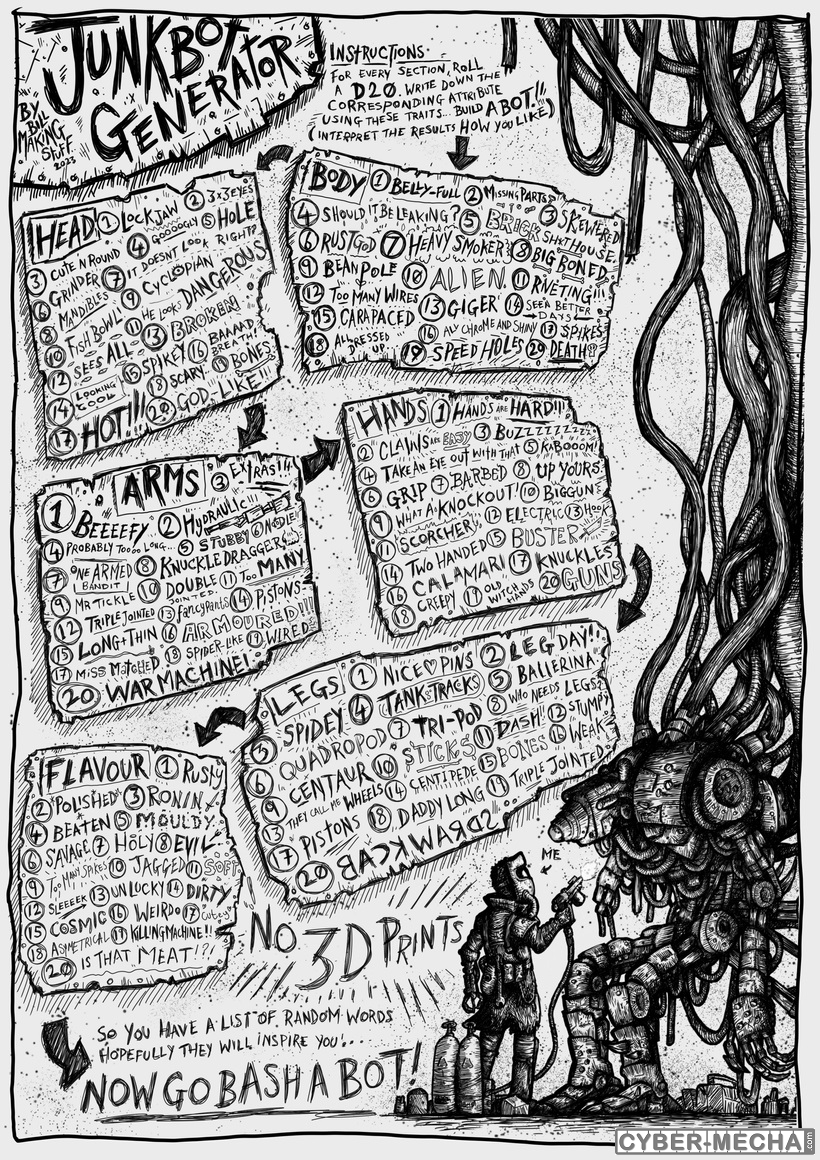 JUNKBOT
GENERATOR
BY
BILL
MAKING
STUFF
2023
INSTRUCTIONS
FOR EVERY SECTION, ROLL
A D20. WRITE DOWN THE
CORRESPONDING ATTRIBUTE
USING THESE TRAITS... BUILD A BOT!!
(INTERPRET THE RESULTS HOW YOU LIKE)
HEAD 1 LOCKJAW 2 3x3 EYES
3 CUTE N ROUND 4 GOOOOGLY 5 HOLE
6 GRINDER 7 IT DOESNT LOOK RIGHT?
8 MANDIBLES 9 CYCLOPIAN
10 FISH BOWL 11 HE LOOKS DANGEROUS
12 SEES ALL 13 BROKEN
14 LOOKING COOL 15 SPIKEY 16 BAAAAD BREATH!
17 HOT!!! 18 SCARY 19 BONES
20 GOD-LIKE!!
BODY 1 BELLY-FULL 2 MISSING PARTS 3 SKEWERED
4 SHOULD IT BE LEAKING? 5 BRICK SH*THOUSE
6 RUST GOD 7 HEAVY SMOKER 8 BIG BONED
9 BEAN POLE 10 ALIEN 11 RIVETING!!!
12 TOO MANY WIRES 13 GIGER 14 SEEN BETTER DAYS
15 CARAPACED 16 ALL CHROME AND SHINY 17 SPIKES
18 ALL DRESSED UP 19 SPEED HOLES 20 DEATH!!
ARMS
1 BEEEEFY 2 HYDRAULIC!!! 3 EXTRAS!!
4 PROBABLY TOOOO LONG... 5 STUBBY 6 NOODLE
7 ONE ARMED BANDIT 8 KNUCKLE DRAGGERS...
9 MR TICKLE 10 DOUBLE JOINTED 11 TOO MANY
12 TRIPLE JOINTED 13 fancypants 14 PISTONS
15 LONG+THIN 6 ARMOURED!!!
17 MISS MATCHED 18 SPIDER-LIKE 19 WIRED
20 WAR MACHINE!
HANDS 1 HANDS ARE HARD!!!
2 CLAWS ARE EASY 3 BUZZZZZZZZZ
4 TAKE AN EYE OUT WITH THAT 5 KABOOOM!
6 GRIP 7 BARBED 8 UP YOURS
9 WHAT A KNOCKOUT! 10 BIGGUN
11 SCORCHER 12 ELECTRIC 13 HOOK
14 TWO HANDED 15 BUSTER
16 CALAMARI 17 KNUCKLES
18 CREEPY 19 OLD WITCH HANDS 20 GUNS
LEGS 1 NICE♡PINS 2 LEG DAY!!
3 SPIDEY 4 TANK TRACKS 5 BALLERINA
6 QUADROPOD 7 TRI-POD 8 WHO NEEDS LEGS?
9 CENTAUR 10 STICKS 11 DASH!! 12 STUMPY
13 THEY CALL ME WHEELS 14 CENTIPEDE 15 BONES 16 WEAK
17 PISTONS 18 DADDY LONG 19 TRIPLE JOINTED
20 BACKWARDS
FLAVOUR 1 RUSTY
2 "POLISHED" 3 RONIN
4 BEATEN 5 MOULDY
6 SAVAGE 7 HOLY 8 EVIL
9 TOO MANY SPIKES 10 JAGGED 11 SOFT
12 SLEEEEK 13 UNLUCKY 14 DIRTY
15 COSMIC 16 WEIRDO 17 Cutesy
18 ASYMETRICAL 19 KILLING MACHINE!!
20 IS THAT MEAT!?!
ME
NO
3D PRINTS
SO YOU HAVE A LIST OF RANDOM WORDS
HOPEFULLY THEY WILL INSPIRE YOU...
NOW GO BASH A BOT!
CYBER-MECHA.com